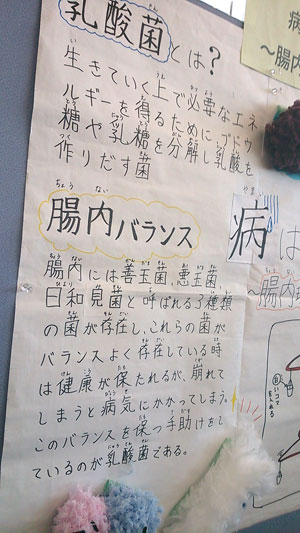 乳酸菌とは？
生きていく上で必要なエネ
ルギーを得るためにブドウ
糖や乳糖を分解し乳酸を
作りだす菌
腸内バランス
腸内には善玉菌、悪玉菌、
日和見菌と呼ばれる3種類
の菌が存在し、これらの菌が
バランスよく存在している時
は健康が保たれるが、崩れて
しまうと病気にかかってしまう。
このバランスを保つ手助けをて
ているのが乳酸菌である。
病
〜腸内
病は
〜腸内